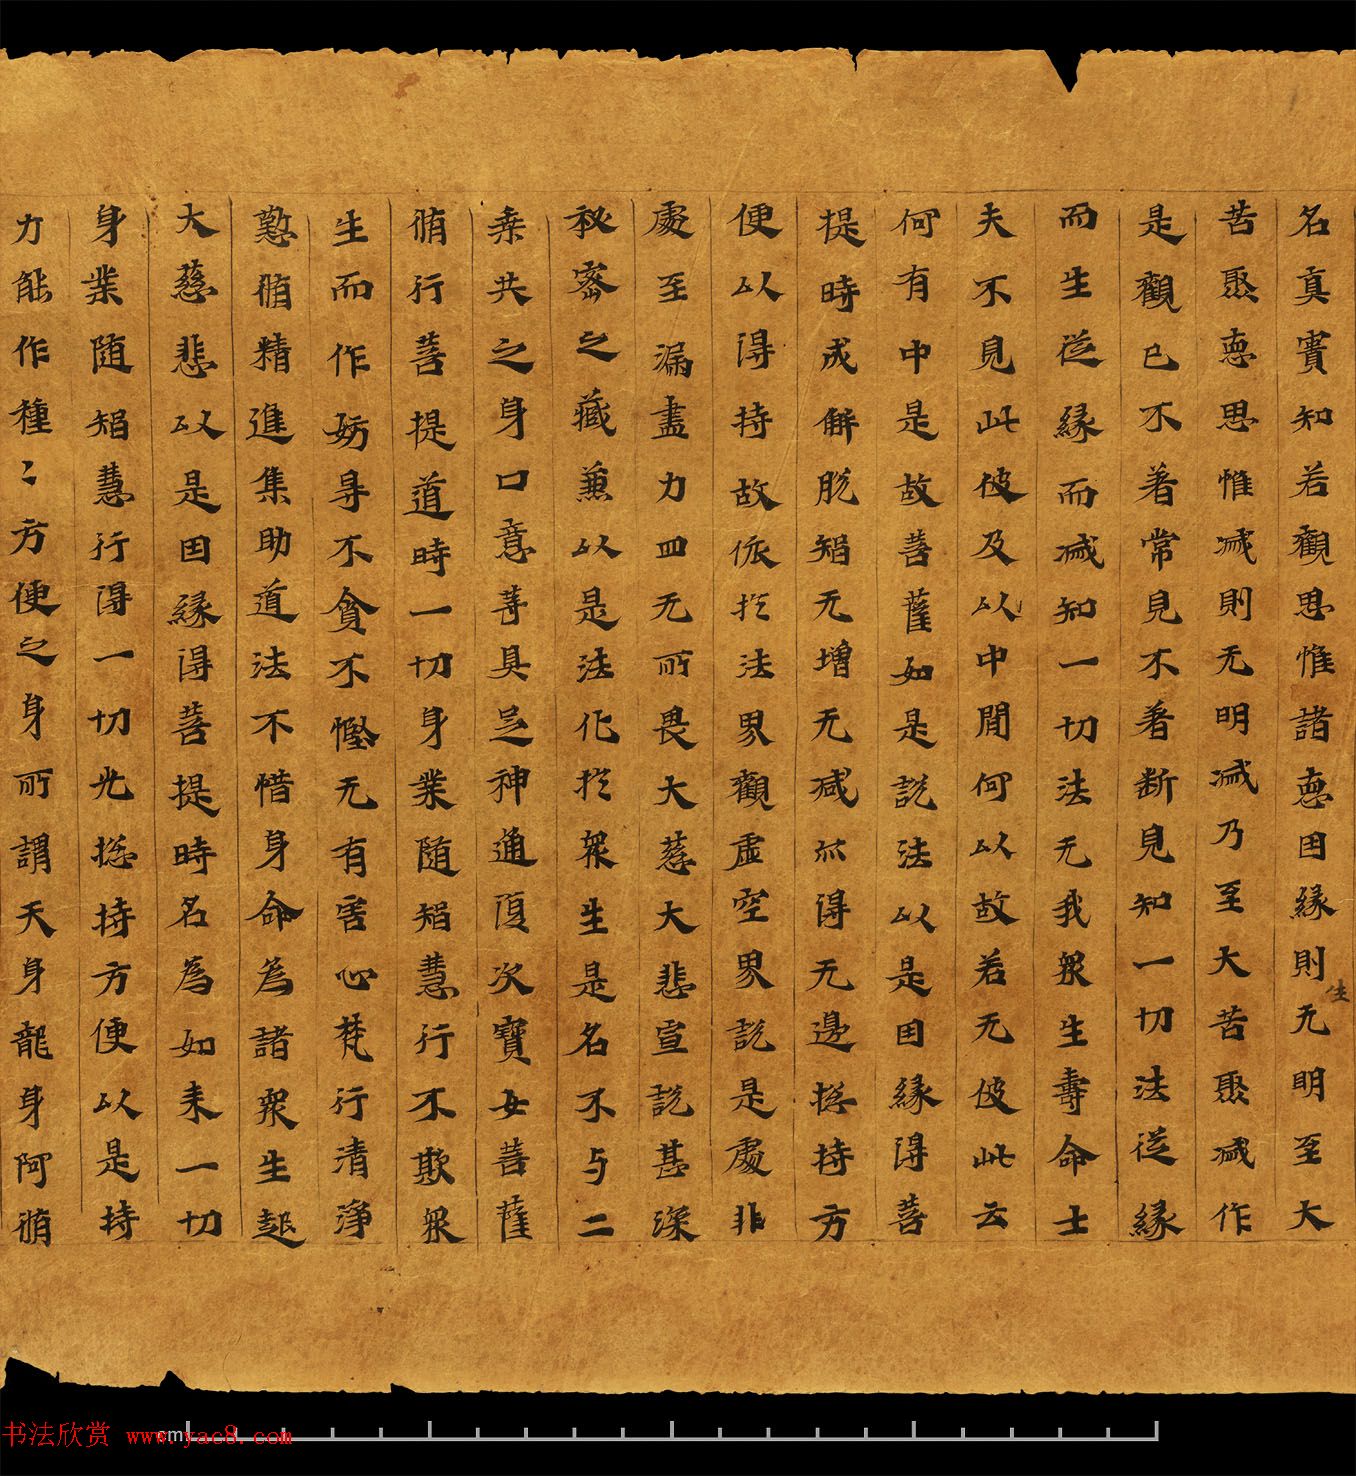 名真實知若觀思惟諸惡因緣則无明至大
生
苦聚惡思惟滅則无明滅乃至大苦聚滅作
是觀已不著常見不著斷見知一切法從緣
而生從緣而滅知一切法无我衆生壽命士
夫不見此彼及以中間何以故若无彼此云
何有中是故菩薩如是說法以是因緣得菩
提時成解脫智无增无減亦得无邊揔持方
便以得持故依於法界觀虛空界說是處非
處至漏盡力四无所畏大慈大悲宣說甚深
秘密之藏兼以是法化於衆生是名不与二
乗共之身口意等具足神通復次寶女菩薩
脩行菩提道時一切身業隨智慧行不欺衆
生而作妨㝵不貪不慳无有害心梵行清淨
懃脩精進集助道法不惜身命為諸衆生起
大慈悲以是因緣得菩提時名為如来一切
身業隨智慧行得一切光揔持方便以是持
力能作種〻方便之身所謂天身龍身阿脩
cm
书法欣赏 www.yac8.com